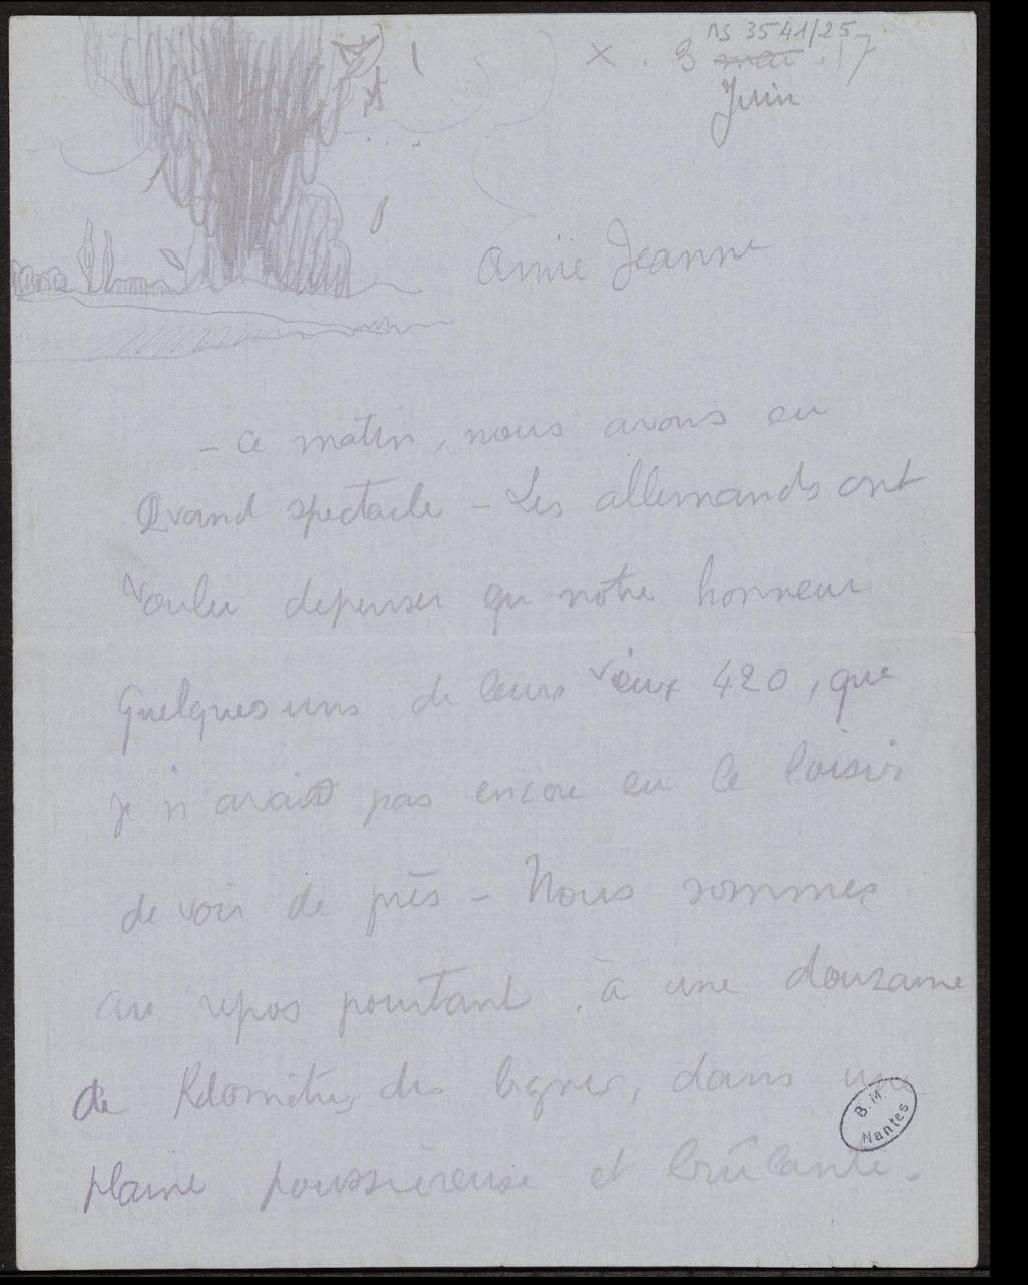 ms 3541/25
X. 3 mai. 17
Juin
amie Jeanne
- Ce matin, nous avons eu
Grand spectacle - Les allemands ont
voulu depenser en notre honneur
Quelques uns de leurs vieux 420, que
je n'avais pas encore eu le loisir
de voir de près - Nous sommes
au repos pourtant à une douzaine
de Kilomètres des lignes, dans une
plaine poussièreuse et brûlante.
B.M
Nantes